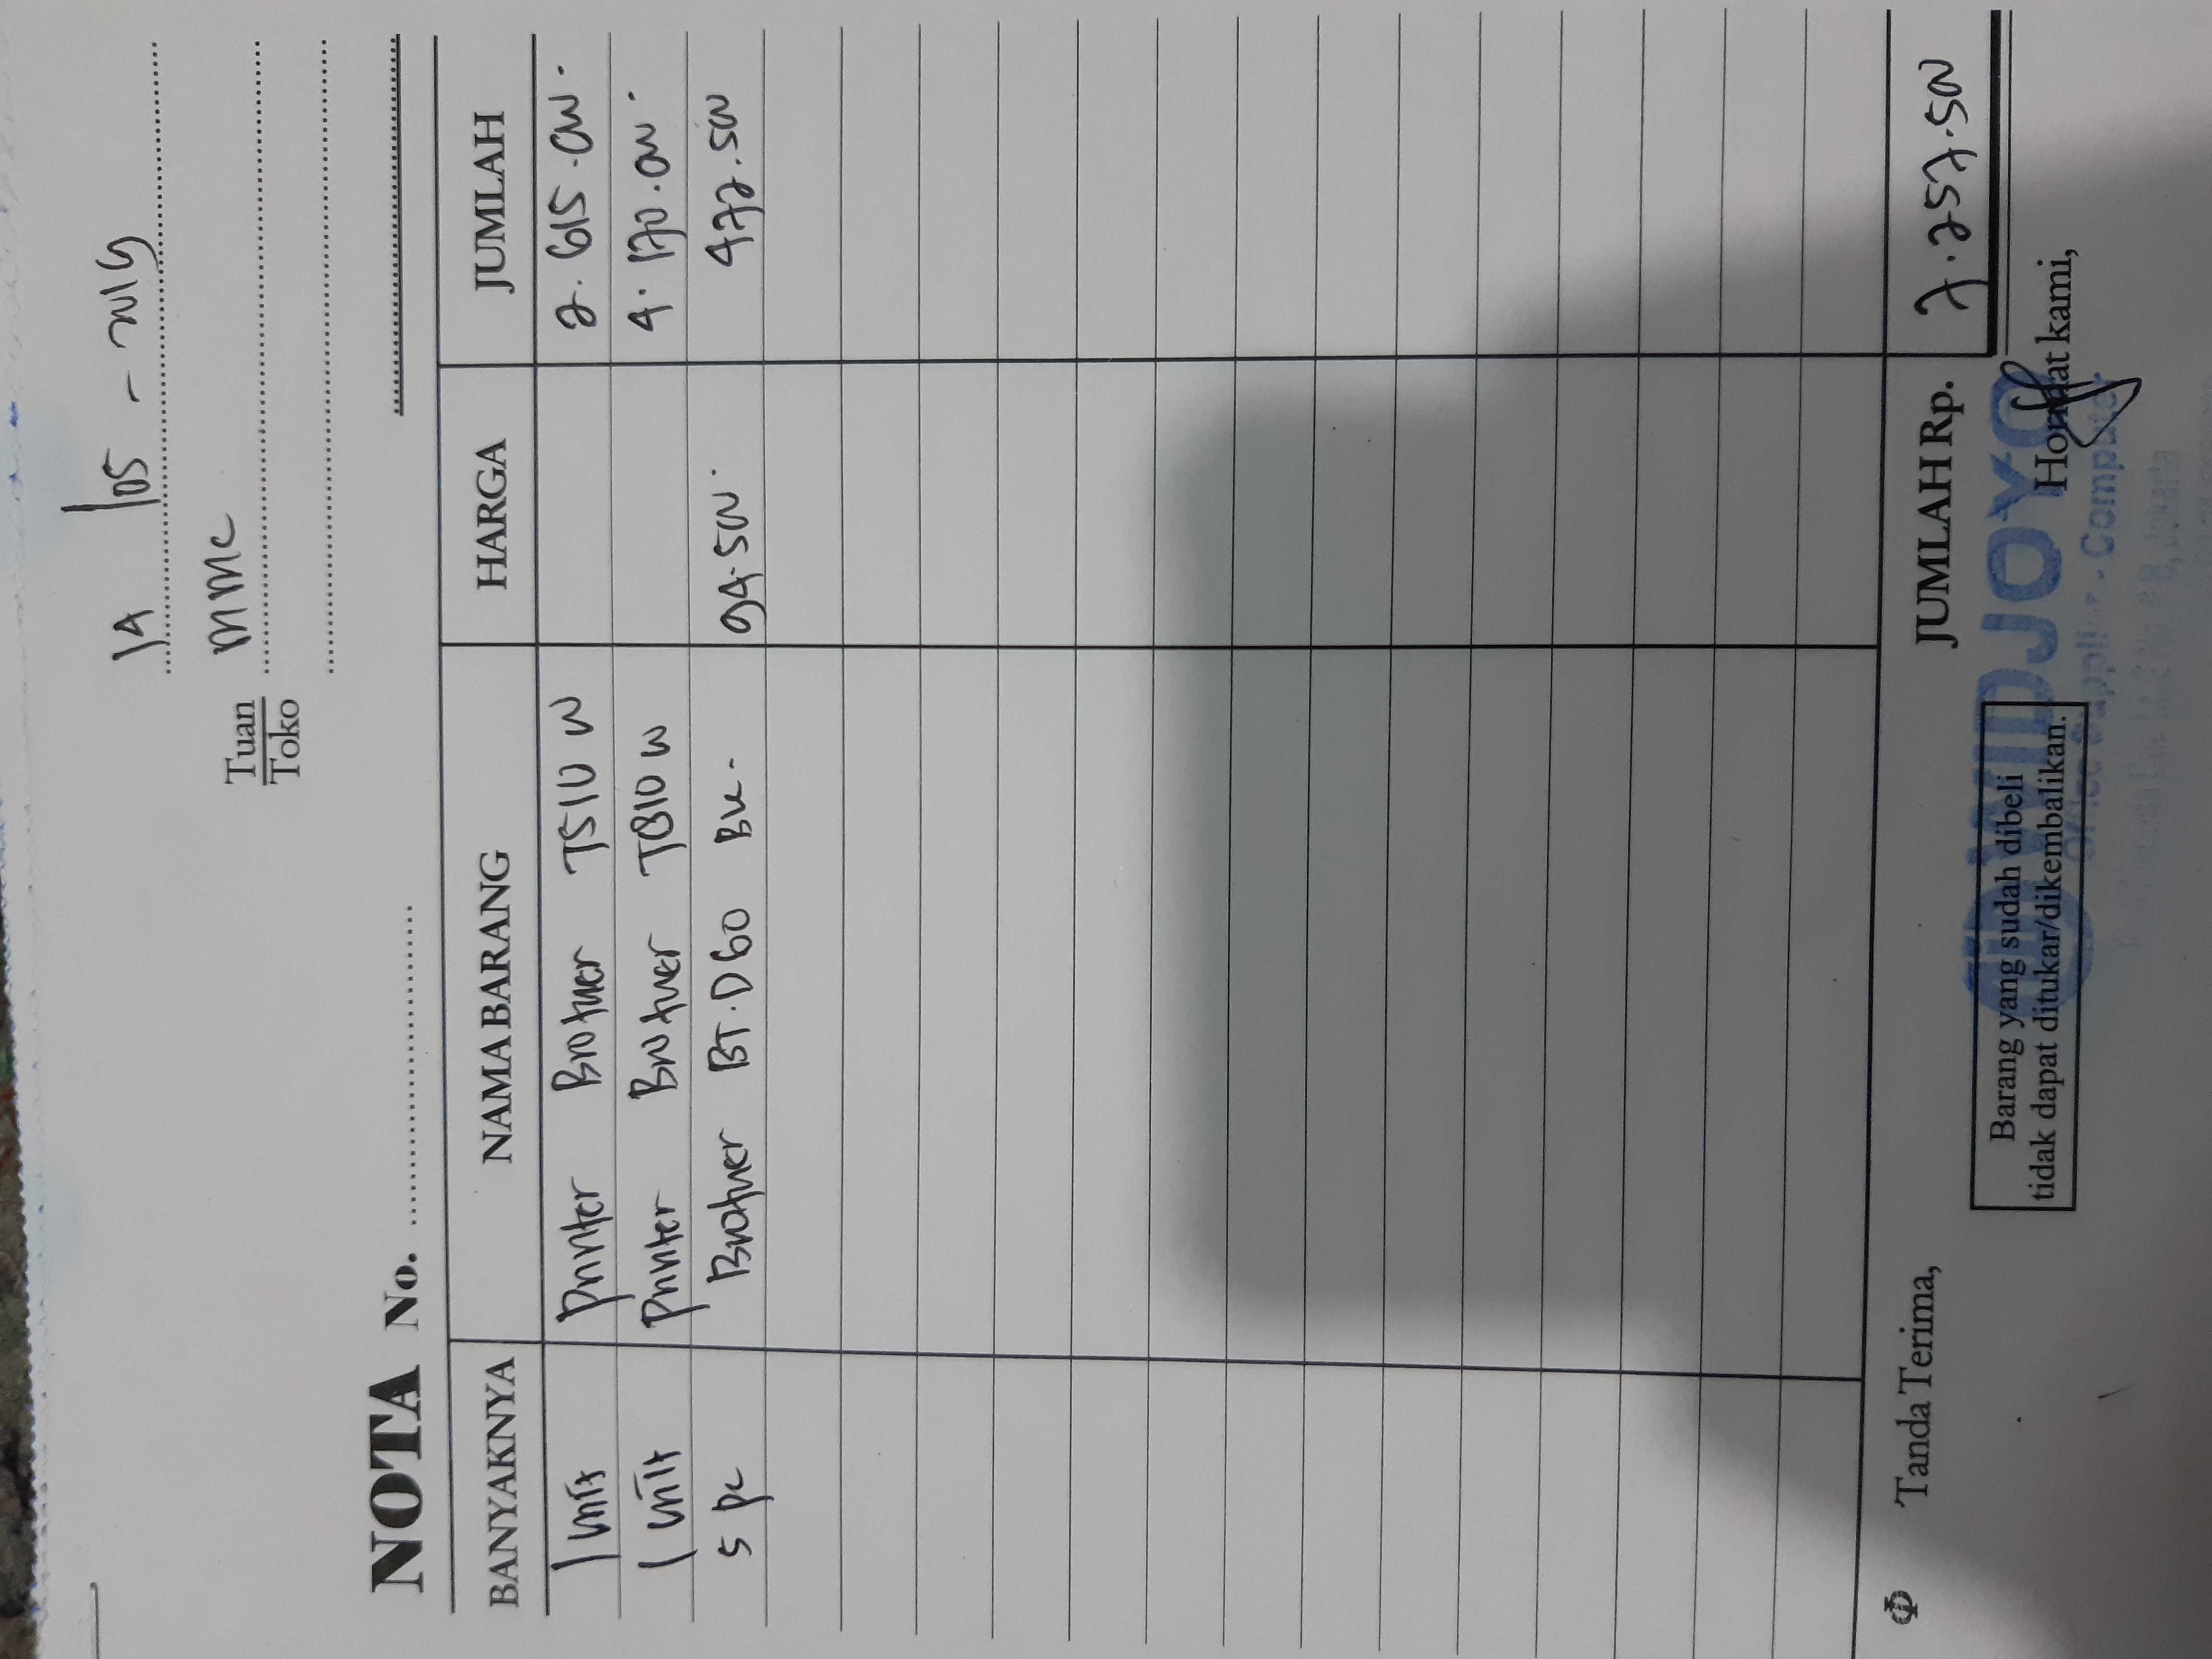 14/05 - 2019
Tuan MMC
Toko
NOTA No.
BANYAKNYA NAMA BARANG HARGA JUMLAH
1 unit Printer Brother T510 W 2.615.000.
1 unit Printer Brother T810 W 4.170.000.
5 pc Brother BT.D60 BK. 94.500. 472.500
Tanda Terima, JUMLAH Rp. 7.257.500
Barang yang sudah dibeli
tidak dapat ditukar/dikembalikan.
Hormat kami,
SIDWIDJOYO
Computer